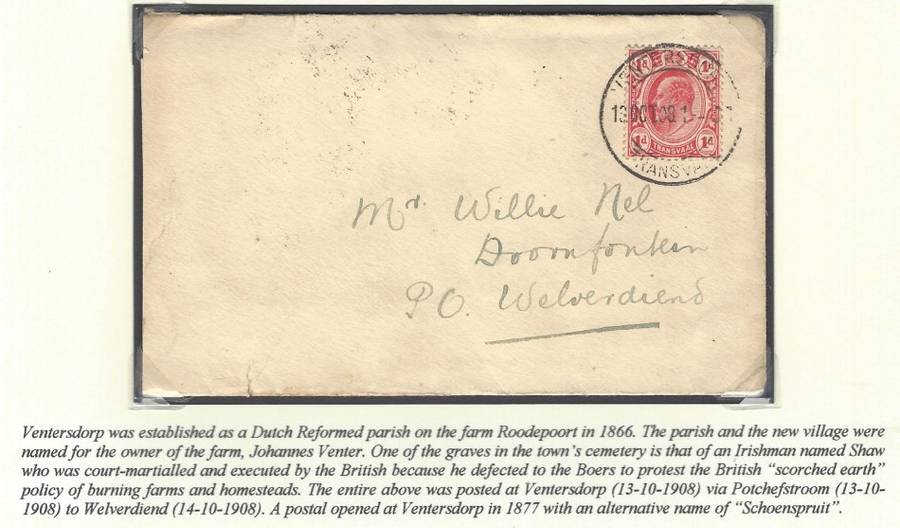 VENTERSD
1d 1d
13 OCT 08 1
1d TRANSVAAL 1d
TRANSVA
Mr. Willie Nel
Doornfontein
P.O. Welverdiend
Ventersdorp was established as a Dutch Reformed parish on the farm Roodepoort in 1866. The parish and the new village were
named for the owner of the farm, Johannes Venter. One of the graves in the town's cemetery is that of an Irishman named Shaw
who was court-martialled and executed by the British because he defected to the Boers to protest the British “scorched earth”
policy of burning farms and homesteads. The entire above was posted at Ventersdorp (13-10-1908) via Potchefstroom (13-10-
1908) to Welverdiend (14-10-1908). A postal opened at Ventersdorp in 1877 with an alternative name of “Schoenspruit”.